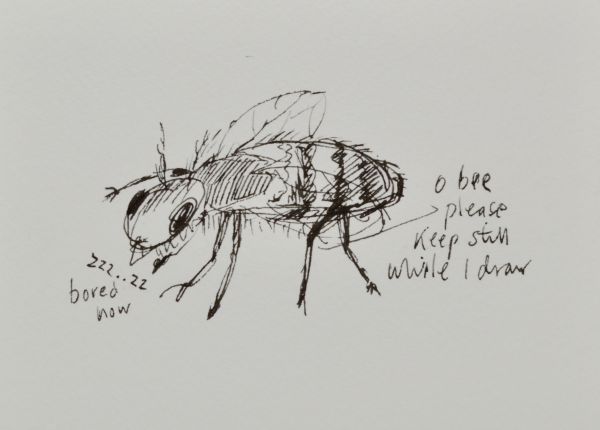 zzz..zz
bored
now
o bee
please
keep still
while I draw